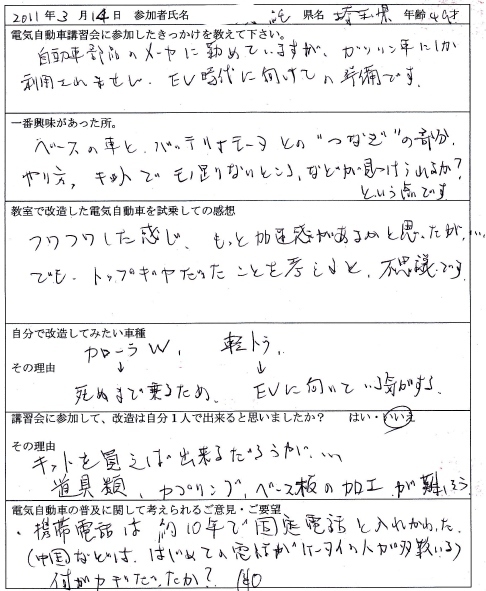 2011年3月14日 参加者氏名 県名 埼玉県 年齢49才
電気自動車講習会に参加したきっかけを教えて下さい。
自動車部品のメーカに勤めていますが、ガソリン車にしか
利用されませし、EV時代に向けての準備です。
一番興味があった所。
ベースの車と、バッテリやモータとの"つなぎ"の部分。
やり方。キットでモノ足りないところ、などが見つけられるか?
という点です
教室で改造した電気自動車を試乗しての感想
フワフワした感じ、もっと加速感があるかと思ったが、…
でも、トップギヤだったことを考えると、不思議です
自分で改造してみたい車種
カローラW、 軽トラ、
その理由 ↓ ↓
死ぬまで乗るため、 EVに向いている気がする。
講習会に参加して、改造は自分1人で出来ると思いましたか? はい・いいえ
その理由
キットを買えば出来るだろうが、…
道具類、カップリング、ベース板の加工が難しそう
電気自動車の普及に関して考えられるご意見・ご要望
・携帯電話は約10年で固定電話と入れかわった
(中国などは、はじめての電話がケータイの人が多数いる)
何がカギだったか?